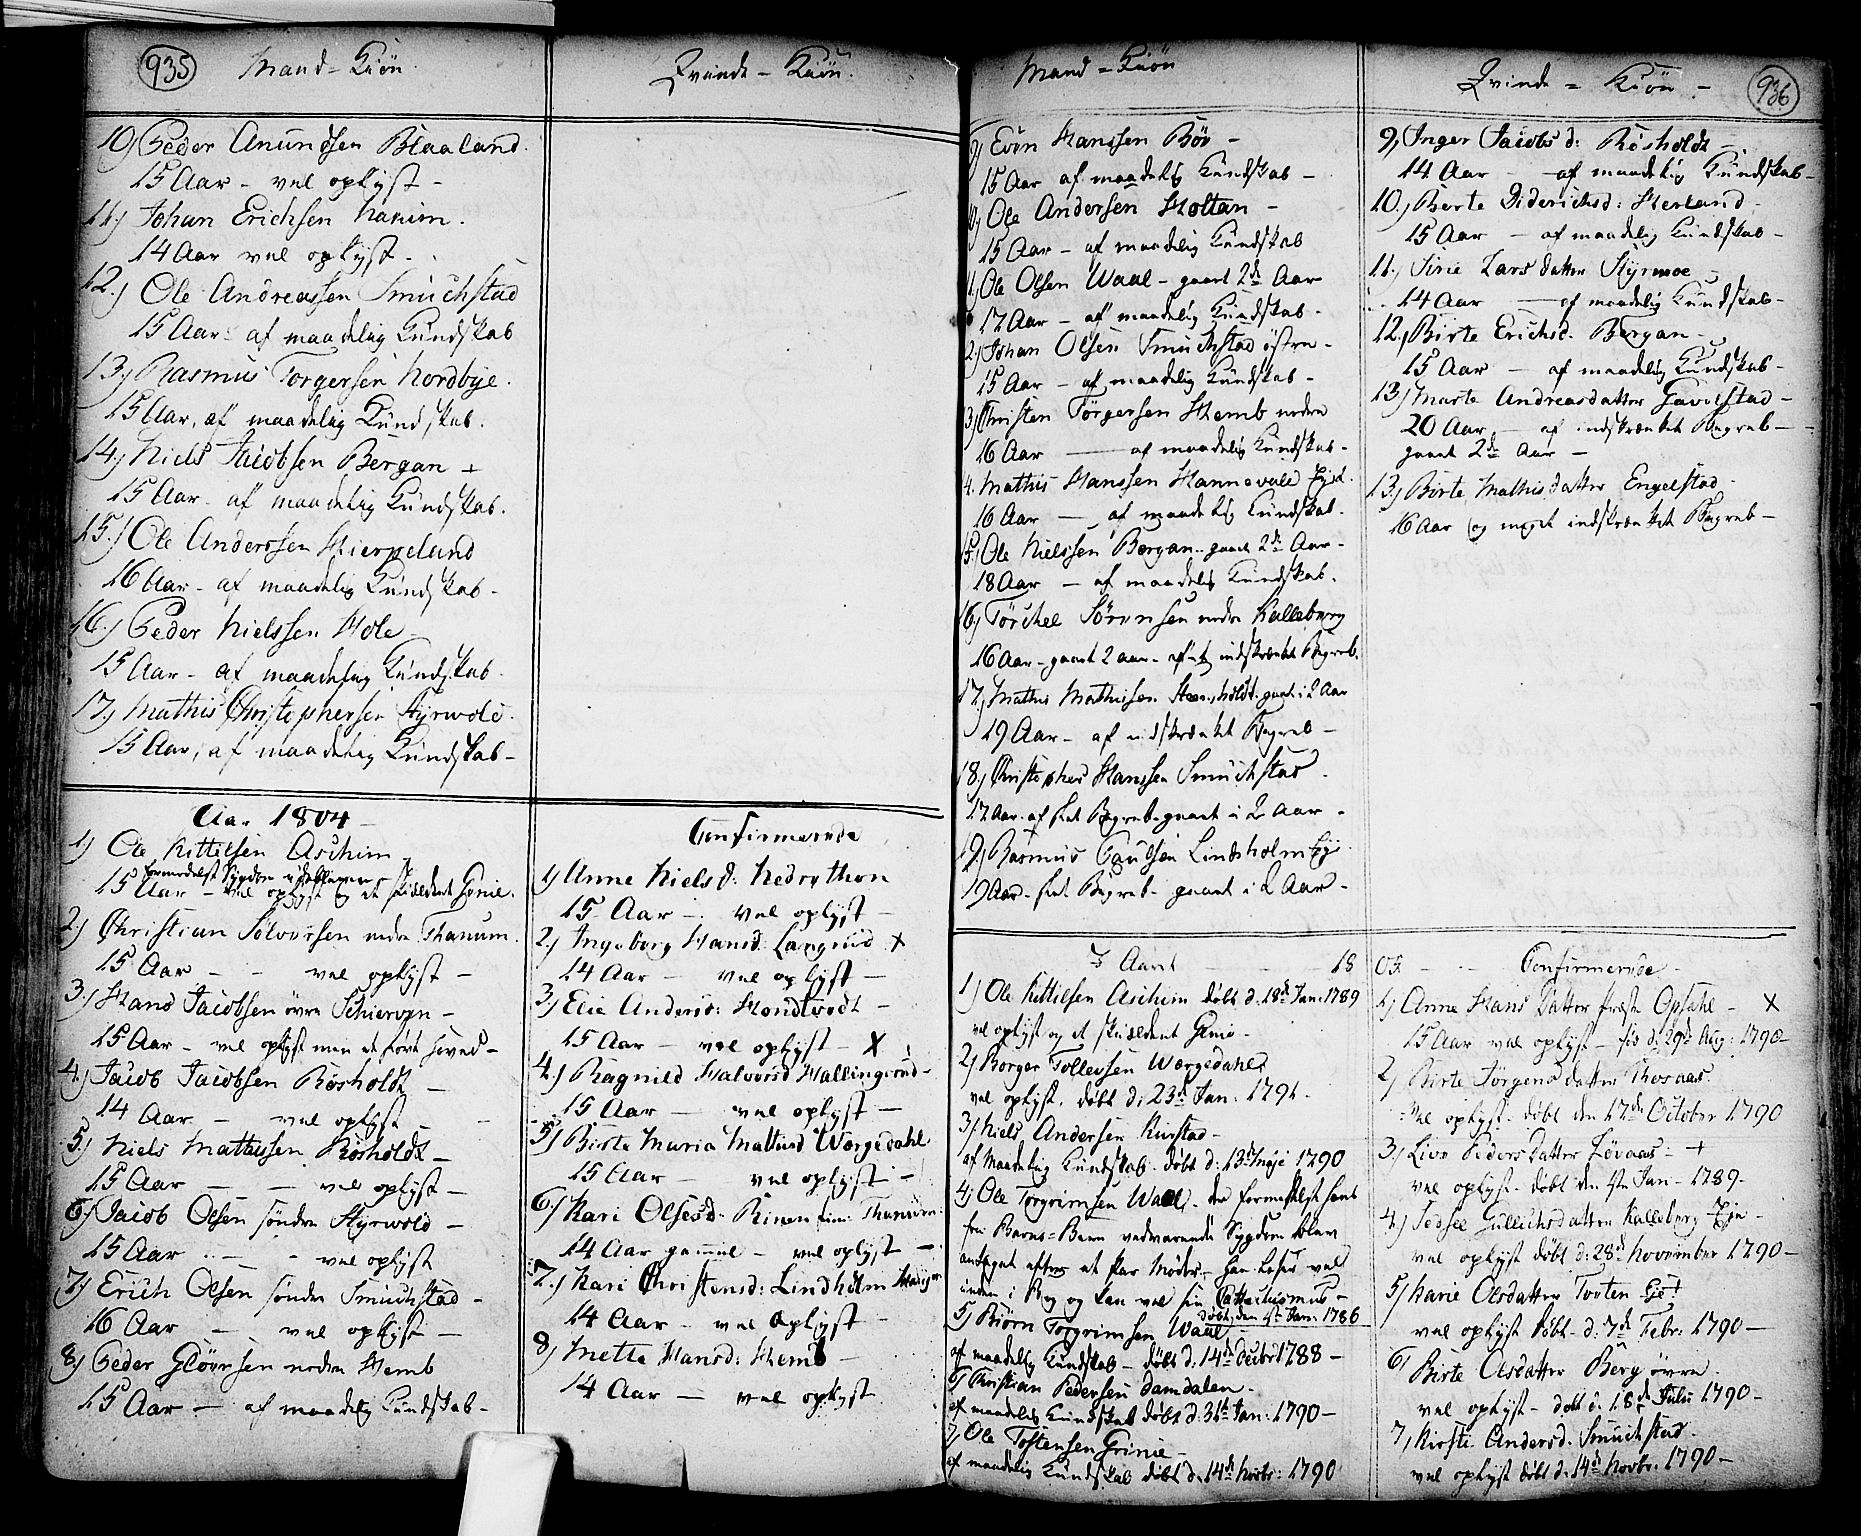 935
Mand = Kiön
10) Peder Anundsen Blaaland
15 Aar - vel oplyst -
11.) Johan Erichsen Hanum.
14 Aar vel oplyst -
12.) Ole Andreassen Smuchstad
15 Aar - af maadelig Kundskab
13.) Rasmus Torgersen Nordbye.
15 Aar, af maadelig Kundskab.
14) Niels Jacobsen Bergan +
15 Aar - af maadelig Kundskab.
15.) Ole Anderssen Hierpeland
16 Aar - af maadelig Kundskab -
16) Peder Nielssen Hole
15 Aar - af maadelig Kundskab.
17) Mathis Christophersen Styrvold.
15 Aar, af maadelig Kundskab -
Aar 1804 -
1) Ole Kittilsen Aschim
15 Aar - vel oplyst og et Genie.
2) Christian Solversen nedre Thanum.
15 Aar - - vel oplyst -
3) Hans Jacobsen övre Schierven -
15 Aar - vel oplyst men
4) Jacob Jacobsen Rösholdt -
14 Aar - vel oplyst -
5) Niels Mathissen Rösholdt -
15 Aar - - vel oplyst -
6) Jacob Olsen söndre Styrvold -
15 Aar - - vel oplyst
7) Erich Olsen söndre Smuchstad -
16 Aar - vel oplyst -
8) Peder Glöersen nedre Hemb
15 Aar - af maadelig Kundskab -
Qvinde - Kiön.
Confirmerede
1) Anne Nielsd:
15 Aar - vel oplyst -
2) Ingeborg Hansd: Langriid +
14 Aar - vel oplyst -
3) Elie Andersd: -
15 Aar - vel oplyst - X
4) Ragnild Halvorsd Hallingrød -
15 Aar - vel oplyst -
5) Birte Maria Mathisd Wærgedahl
15 Aar - vel oplyst -
6) Kari Olsesd: Thanum.
14 Aar gammel - vel oplyst -
7.) Kari Christensd: Lindholm
14 Aar - vel oplyst -
8) Mette Hansd: Hemb -
14 Aar - vel oplyst
Mand = Kiön
9) Even Hanssen Böe -
15 Aar af maadelig Kundskab -
10) Ole Andersen Holtan -
15 Aar - af maadelig Kundskab
11) Ole Olsen Waal - gaaet 2de Aar
17 Aar - af maadelig Kundskab -
12) Johan Olsen Smuchstad östre -
15 Aar - af maadelig Kundskab -
13) Christen Törgersen Hemb nedre
16 Aar - af maadelig Kundskab -
14. Mathis Hanssen Hannevold Eje.
16 Aar - af maadelig Kundskab.
15) Ole Nielssen Bergan - gaaet 2de Aar -
18 Aar - af maadelig Kundskab.
16) Törchel Sörensen nedre Kalleberg
16 Aar - gaaet 2 aar - af indskrænket Begreb.
17) Mathis Mathissen gaaet i 2 Aar
19 Aar - af indskrænket Begreb -
18.) Christopher Hanssen Smuchstad.
17 Aar af slet Begreb gaaet i 2 Aar -
19) Rasmus Paulsen Lindholm Eje
19 Aar - slet Begreb - gaaet i 2 Aar -
Aaret 18
1) Ole Kittilsen Aschim döbt d. 18de Jan: 1789
vel oplyst og et Genie -
2) Borger Tollevsen Wærgedahl
vel oplyst. döbt d: 23de Jan: 1791 -
3) Niels Andersen Rirstad -
af Maadelig Kundskab - döbt d: 13de Maji 1790
4) Ole Torgrimsen Waal - der formedelst sin
fra Barns-Been vedvarende Sygdom blev
antaget efter et Par Möder - han Læser vel
inden i Bog og kan vel sin Cattechismus -
döbt den 4de Jan: 1786
5) Biörn Torgrimsen Waal
af maadelig Kundskab - döbt d. 14de Decbr 1788 -
6) Christian Pedersen Damdalen -
af maadelig Kundskab döbt d. 31te Jan: 1790 -
7) Ole Tostensen Grinie -
af maadelig Kundskab döbt d. 14de Novbr: 1790
Qvinde = Kiön -
936
9) Inger Jacobs d: Rösholdt -
14 Aar - af maadelig Kundskab -
10.) Berte Diderichsd: Herland -
15 Aar - af maadelig Kundskab -
11.) Sirie Lars datter Styrmoe
14 Aar - af maadelig Kundskab -
12.) Birte Erichsd. Bergan -
15 Aar - af maadelig Kundskab -
13.) Marte Andreasdatter Gaverstad -
20 Aar - af indskrænket Begreb -
gaaet 2de Aar -
13.) Birte Mathisdatter Engelstad -
16 Aar og meget indskrænket Begreb -
05. - Confirmerede -
1) Anne Hans Datter Opsahl - X
15 Aar vel oplyst - d: 29de Aug: 1790 -
2) Birte Jörgensdatter Thoraas.
vel oplyst - döbt den 17de October 1790
3) Live Pedersdatter Löвaas - +
vel oplyst - döbt den Jan - 1789 -
4) Gullichsdatter Kalleberg Eje -
vel oplyst döbt d: 28de November 1790 -
5) Marie Olsdatter Tveten Eje +
vel oplyst döbt - d: 7de Febr: 1790 -
6) Birte Olsdatter Berg övre -
vel oplyst - döbt d. 18de Julii 1790 -
7) Kirsti Andersd. Smuchstad -
vel oplyst döbt d. 14de Novbr: 1790 -